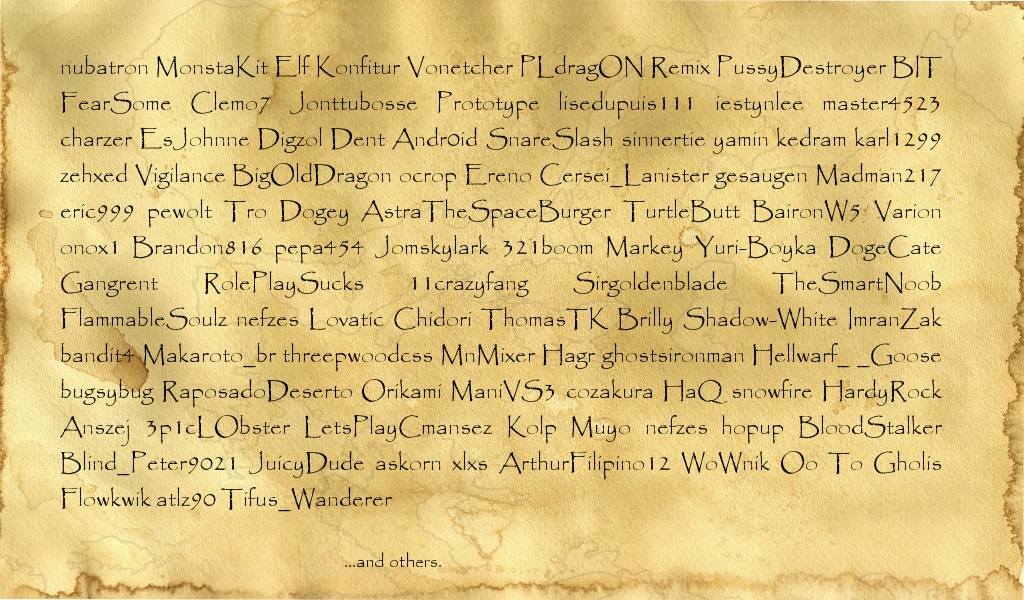 nubatron MonstaKit Elf Konfitur Vonetcher PLdragON Remix PussyDestroyer BIT
FearSome Clemo7 Jonttubosse Prototype lisedupuis111 iestynlee master4523
charzer EsJohnne Digzol Dent Andr0id SnareSlash sinnertie yamin kedram karl1299
zehxed Vigilance BigOldDragon ocrop Ereno Cersei_Lanister gesaugen Madman217
eric999 pewolt Tro Dogey AstraTheSpaceBurger TurtleButt BaironW5 Varion
onox1 Brandon816 pepa454 Jomskylark 321boom Markey Yuri-Boyka DogeCate
Gangrent RolePlaySucks 11crazyfang Sirgoldenblade TheSmartNoob
FlammableSoulz nefzes Lovatic Chidori ThomasTK Brilly Shadow-White ImranZak
bandit4 Makaroto_br threepwoodcss MnMixer Hagr ghostsironman Hellwarf_ _Goose
bugsybug RaposadoDeserto Orikami ManiVS3 cozakura HaQ snowfire HardyRock
Anszej 3p1cLObster LetsPlayCmansez Kolp Muyo nefzes hopup BloodStalker
Blind_Peter9021 JuicyDude askorn xlxs ArthurFilipino12 WoWnik Oo To Gholis
Flowkwik atlz90 Tifus_Wanderer
...and others.